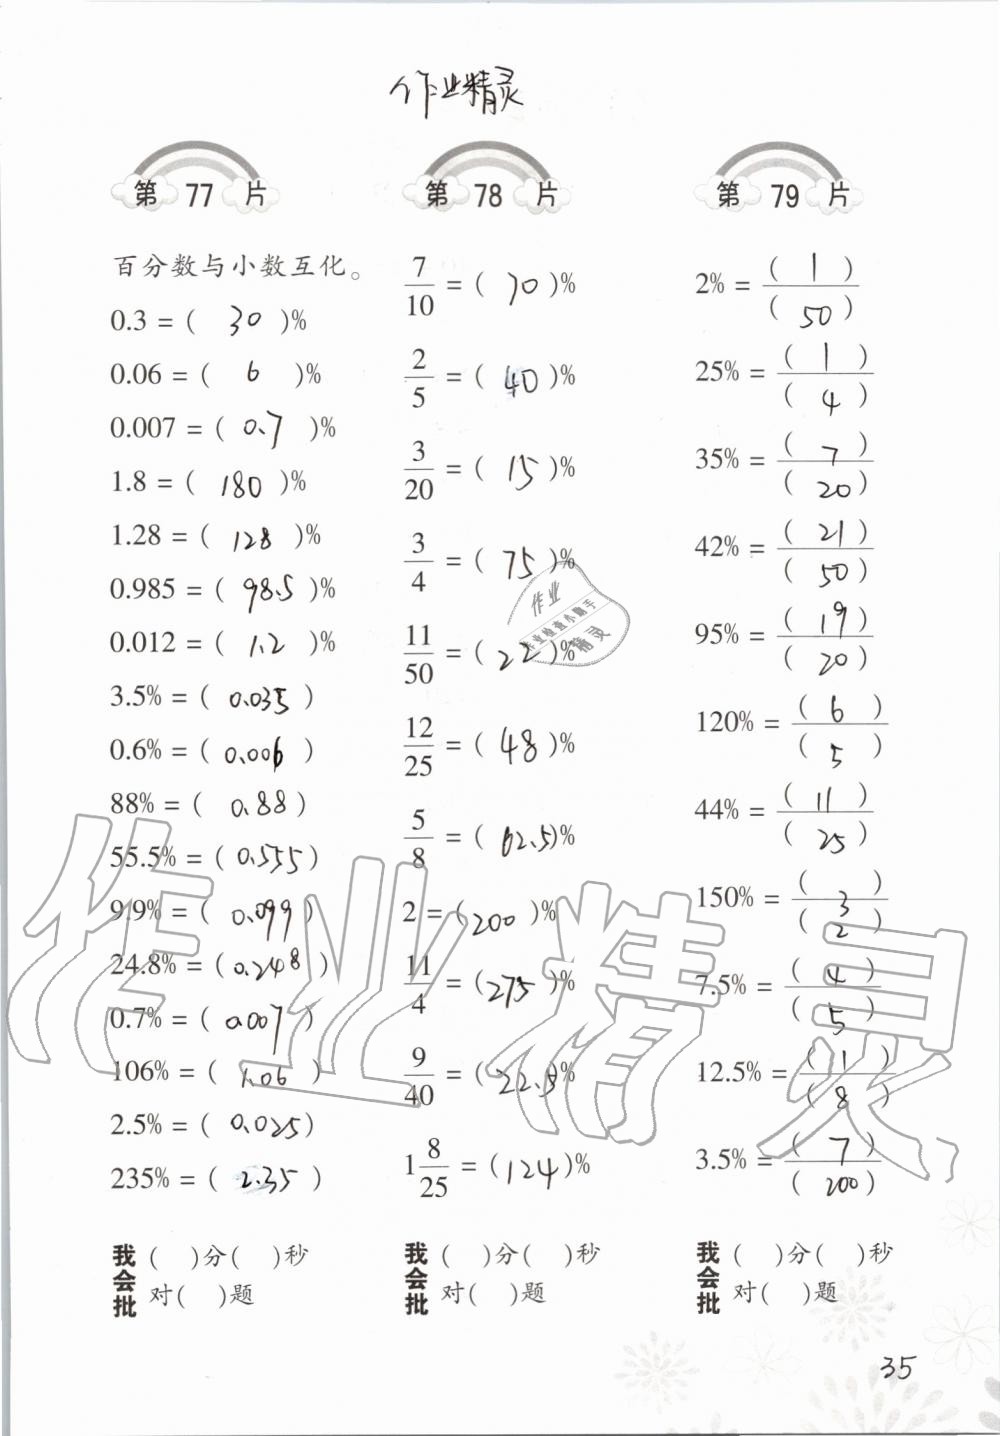 作业精灵
第 77 片
百分数与小数互化。
0.3 = ( 30 )%
0.06 = ( 6 )%
0.007 = ( 0.7 )%
1.8 = ( 180 )%
1.28 = ( 128 )%
0.985 = ( 98.5 )%
0.012 = ( 1.2 )%
3.5% = ( 0.035 )
0.6% = ( 0.006 )
88% = ( 0.88 )
55.5% = ( 0.555 )
9.9% = ( 0.099 )
24.8% = ( 0.248 )
0.7% = ( 0.007 )
106% = ( 1.06 )
2.5% = ( 0.025 )
235% = ( 2.35 )
我会批
( )分( )秒
对( )题
第 78 片
7/10 = ( 70 )%
2/5 = ( 40 )%
3/20 = ( 15 )%
3/4 = ( 75 )%
11/50 = ( 22 )%
12/25 = ( 48 )%
5/8 = ( 62.5 )%
2 = ( 200 )%
11/4 = ( 275 )%
9/40 = ( 22.5 )%
1 8/25 = ( 124 )%
我会批
( )分( )秒
对( )题
第 79 片
2% = ( 1 )/( 50 )
25% = ( 1 )/( 4 )
35% = ( 7 )/( 20 )
42% = ( 21 )/( 50 )
95% = ( 19 )/( 20 )
120% = ( 6 )/( 5 )
44% = ( 11 )/( 25 )
150% = ( 3 )/( 2 )
7.5% = ( 4 )/( 5 )
12.5% = ( 1 )/( 8 )
3.5% = ( 7 )/( 200 )
我会批
( )分( )秒
对( )题
作业
作业检查小助手
精灵
作业精灵
35